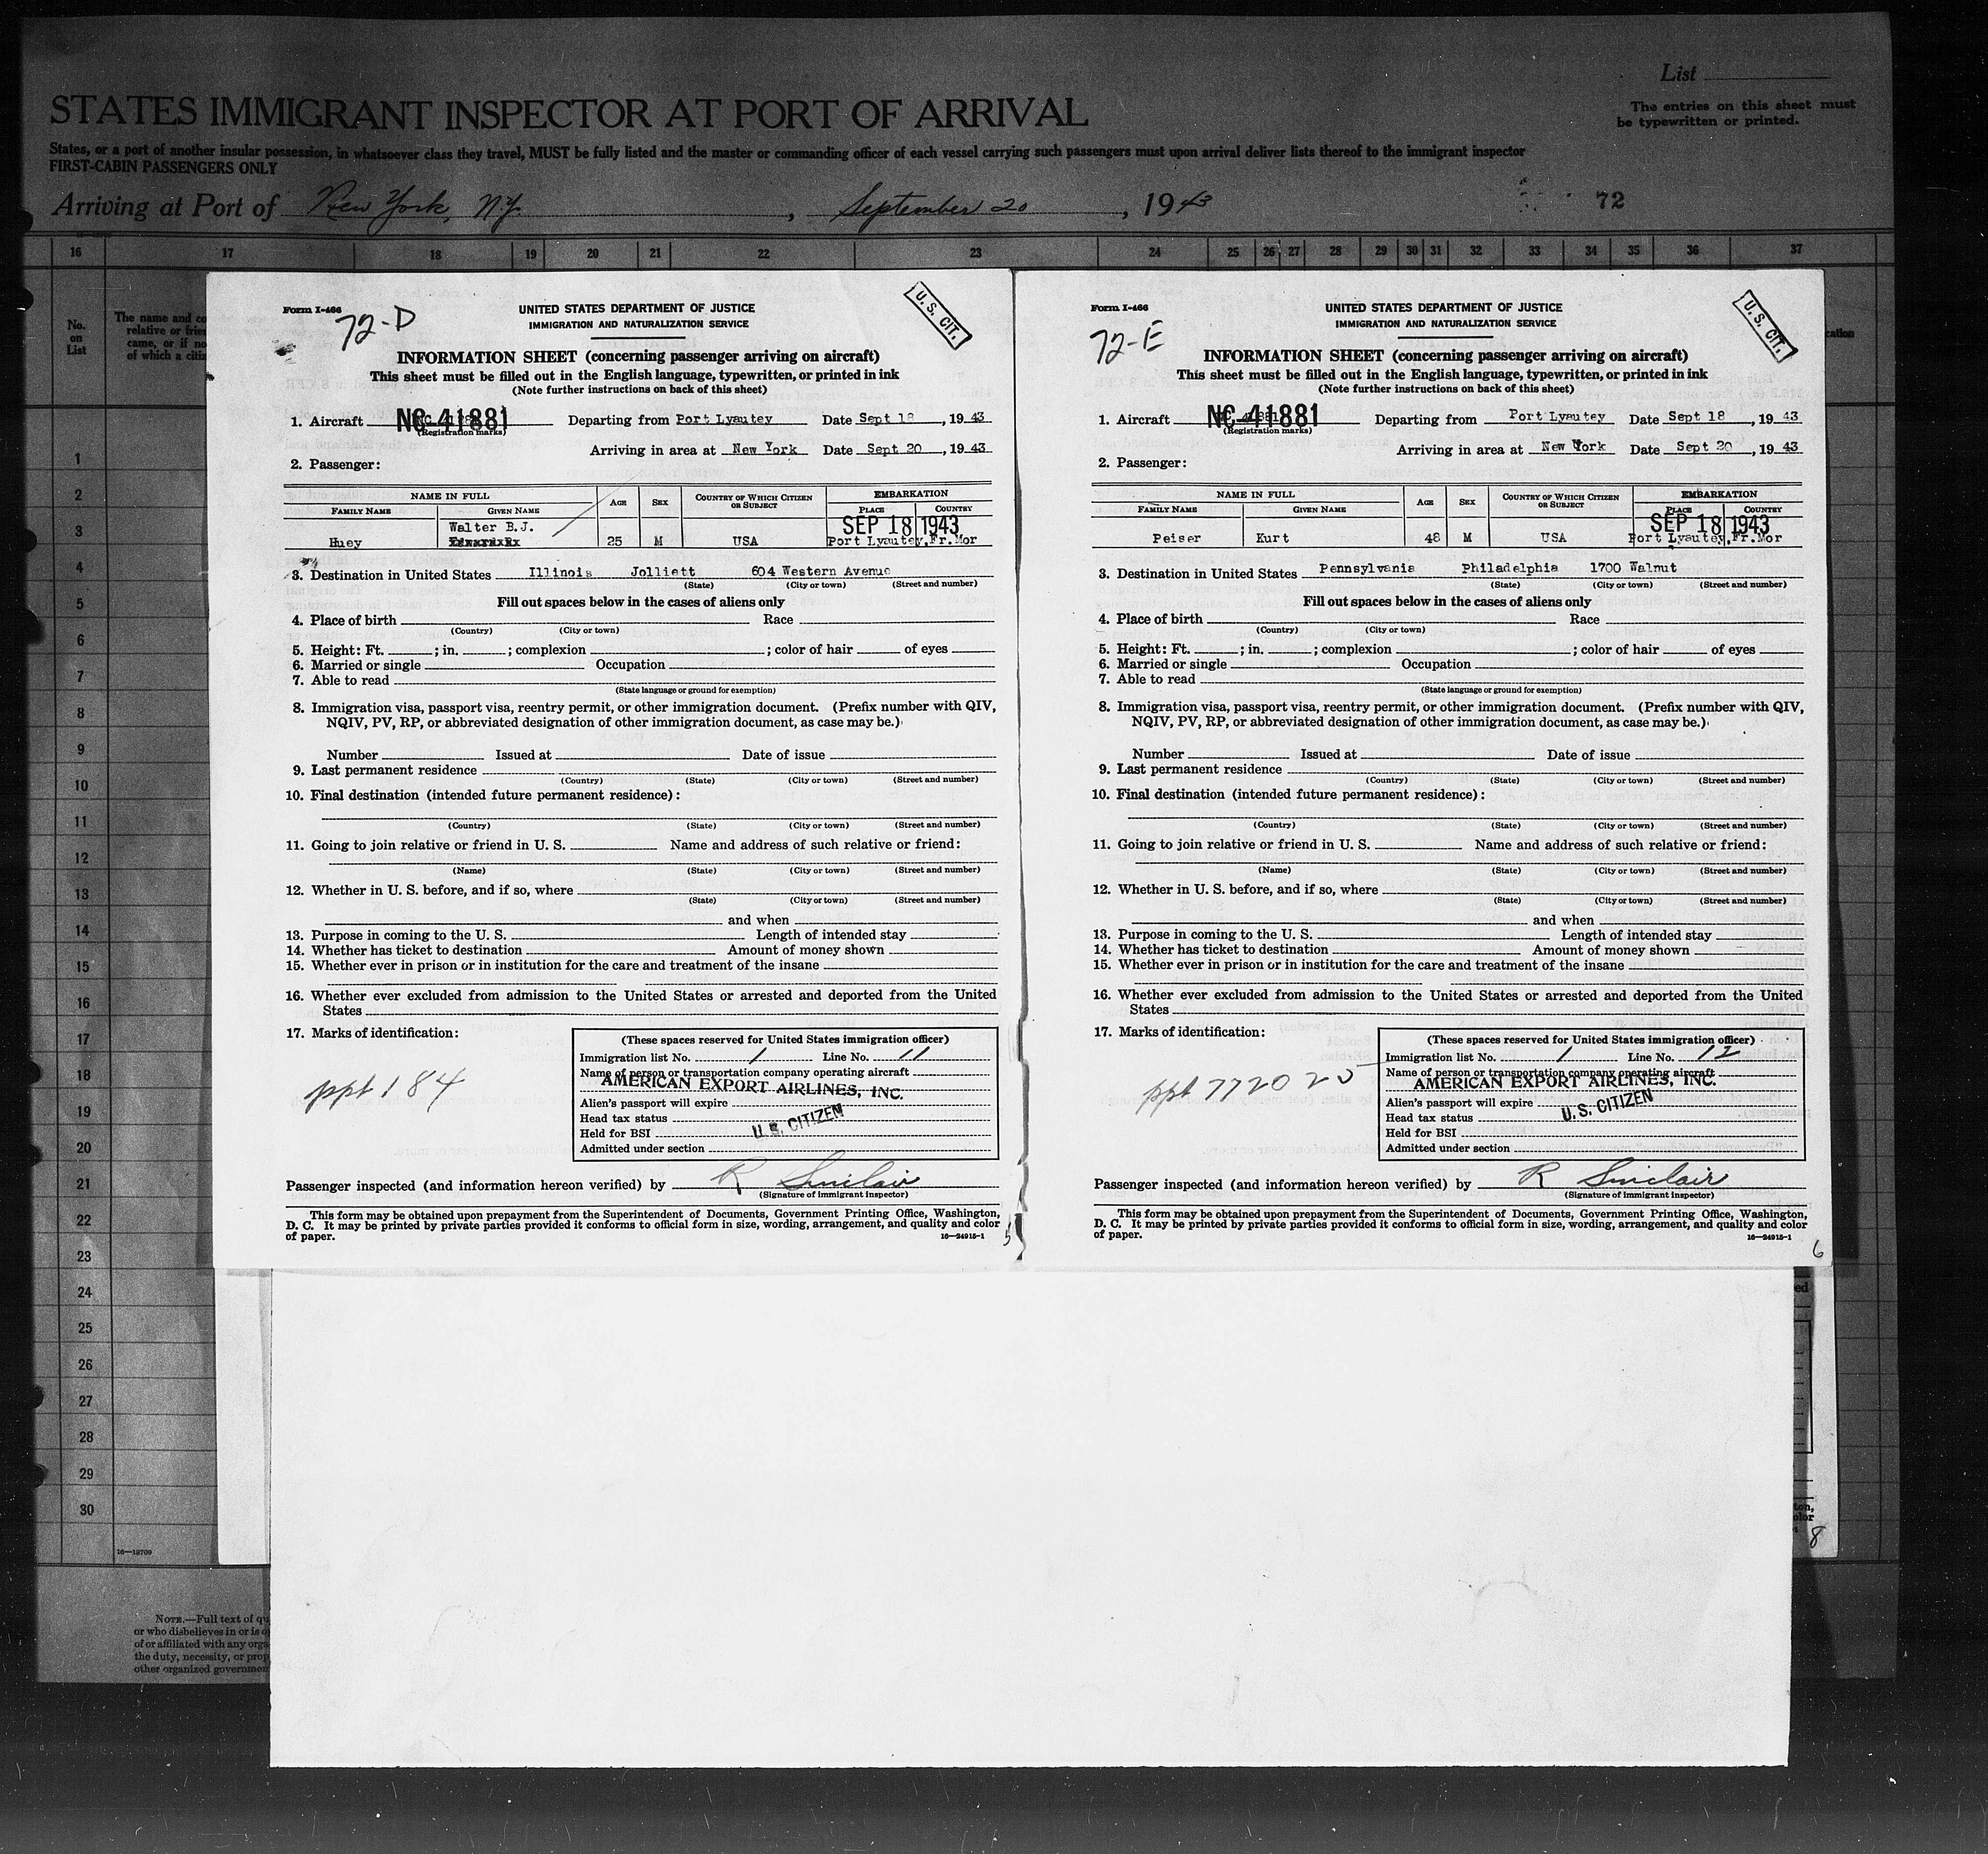 List
STATES IMMIGRANT INSPECTOR AT PORT OF ARRIVAL
The entries on this sheet must
be typewritten or printed.
States, or a port of another insular possession, in whatsoever class they travel, MUST be fully listed and the master or commanding officer of each vessel carrying such passengers must upon arrival deliver lists thereof to the immigrant inspector
FIRST-CABIN PASSENGERS ONLY
Arriving at Port of New York, N.Y. , September 20 , 1943
72
16 17 18 19 20 21 22 23 24 25 26 27 28 29 30 31 32 33 34 35 36 37
No.
on
List
The name and co
relative or frie
came, or if no
of which a citiz
cation
1
2
3
4
5
6
7
8
9
10
11
12
13
14
15
16
17
18
19
20
21
22
23
24
25
26
27
28
29
30
16—13709
NOTE.—Full text of qu
or who disbelieves in or is o
of or affiliated with any orga
the duty, necessity, or prop
other organized governmen
Form I-466
72-D
U. S. CIT.
UNITED STATES DEPARTMENT OF JUSTICE
IMMIGRATION AND NATURALIZATION SERVICE
INFORMATION SHEET (concerning passenger arriving on aircraft)
This sheet must be filled out in the English language, typewritten, or printed in ink
(Note further instructions on back of this sheet)
1. Aircraft NC-41881 Departing from Port Lyautey Date Sept 18, 1943
(Registration marks)
Arriving in area at New York Date Sept 20, 1943
2. Passenger:
NAME IN FULL AGE SEX COUNTRY OF WHICH CITIZEN OR SUBJECT EMBARKATION
FAMILY NAME GIVEN NAME PLACE COUNTRY
Walter B.J. SEP 18 1943
Huey 25 M USA Port Lyautey,Fr.Mor
3. Destination in United States Illinois Jolliett 604 Western Avenue
(State) (City or town) (Street and number)
Fill out spaces below in the cases of aliens only
4. Place of birth Race
(Country) (City or town)
5. Height: Ft. ; in. ; complexion ; color of hair of eyes
6. Married or single Occupation
7. Able to read
(State language or ground for exemption)
8. Immigration visa, passport visa, reentry permit, or other immigration document. (Prefix number with QIV,
NQIV, PV, RP, or abbreviated designation of other immigration document, as case may be.)
Number Issued at Date of issue
9. Last permanent residence
(Country) (State) (City or town) (Street and number)
10. Final destination (intended future permanent residence):
(Country) (State) (City or town) (Street and number)
11. Going to join relative or friend in U. S. Name and address of such relative or friend:
(Name) (State) (City or town) (Street and number)
12. Whether in U. S. before, and if so, where
(State) (City or town) (Street and number)
and when
13. Purpose in coming to the U. S. Length of intended stay
14. Whether has ticket to destination Amount of money shown
15. Whether ever in prison or in institution for the care and treatment of the insane
16. Whether ever excluded from admission to the United States or arrested and deported from the United
States
17. Marks of identification:
ppt 184
(These spaces reserved for United States immigration officer)
Immigration list No. 1 Line No. 11
Name of person or transportation company operating aircraft
AMERICAN EXPORT AIRLINES, INC.
Alien's passport will expire
Head tax status
U.S. CITIZEN
Held for BSI
Admitted under section
Passenger inspected (and information hereon verified) by R Sinclair
(Signature of immigrant inspector)
This form may be obtained upon prepayment from the Superintendent of Documents, Government Printing Office, Washington,
D. C. It may be printed by private parties provided it conforms to official form in size, wording, arrangement, and quality and color
of paper.
16—24915-1
5
Form I-466
72-E
U. S. CIT.
UNITED STATES DEPARTMENT OF JUSTICE
IMMIGRATION AND NATURALIZATION SERVICE
INFORMATION SHEET (concerning passenger arriving on aircraft)
This sheet must be filled out in the English language, typewritten, or printed in ink
(Note further instructions on back of this sheet)
1. Aircraft NC-41881 Departing from Port Lyautey Date Sept 18, 1943
(Registration marks)
Arriving in area at New York Date Sept 20, 1943
2. Passenger:
NAME IN FULL AGE SEX COUNTRY OF WHICH CITIZEN OR SUBJECT EMBARKATION
FAMILY NAME GIVEN NAME PLACE COUNTRY
SEP 18 1943
Peiser Kurt 48 M USA Port Lyautey,Fr.Mor
3. Destination in United States Pennsylvania Philadelphia 1700 Walnut
(State) (City or town) (Street and number)
Fill out spaces below in the cases of aliens only
4. Place of birth Race
(Country) (City or town)
5. Height: Ft. ; in. ; complexion ; color of hair of eyes
6. Married or single Occupation
7. Able to read
(State language or ground for exemption)
8. Immigration visa, passport visa, reentry permit, or other immigration document. (Prefix number with QIV,
NQIV, PV, RP, or abbreviated designation of other immigration document, as case may be.)
Number Issued at Date of issue
9. Last permanent residence
(Country) (State) (City or town) (Street and number)
10. Final destination (intended future permanent residence):
(Country) (State) (City or town) (Street and number)
11. Going to join relative or friend in U. S. Name and address of such relative or friend:
(Name) (State) (City or town) (Street and number)
12. Whether in U. S. before, and if so, where
(State) (City or town) (Street and number)
and when
13. Purpose in coming to the U. S. Length of intended stay
14. Whether has ticket to destination Amount of money shown
15. Whether ever in prison or in institution for the care and treatment of the insane
16. Whether ever excluded from admission to the United States or arrested and deported from the United
States
17. Marks of identification:
ppt 772025
(These spaces reserved for United States immigration officer)
Immigration list No. 1 Line No. 12
Name of person or transportation company operating aircraft
AMERICAN EXPORT AIRLINES, INC.
Alien's passport will expire
Head tax status
U.S. CITIZEN
Held for BSI
Admitted under section
Passenger inspected (and information hereon verified) by R Sinclair
(Signature of immigrant inspector)
This form may be obtained upon prepayment from the Superintendent of Documents, Government Printing Office, Washington,
D. C. It may be printed by private parties provided it conforms to official form in size, wording, arrangement, and quality and color
of paper.
16—24915-1
6
ed
ton,
olor
8